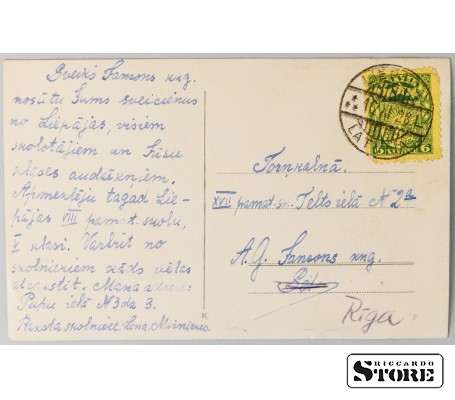 Sveiks Jansons kng.
nosūtu Jums sveicienus
no Liepājas, visiem
skolotājiem un Jūsu
klases audzēkņiem.
Apmeklēju tagad Lie-
pājas VIII pamat. skolu,
V klasi. Varbūt no
skolnieciem kāds vēlas
atrakstīt. Mana adrese:
Pupu ielā N 3 dz 3.
Raksta skolniece Lena
Torņkalnā.
XVII pamat. sk. Telts ielā N 2a
A. G. Jansons kng.
Rīga
K
LATVIJA
6
RICCARDO
STORE